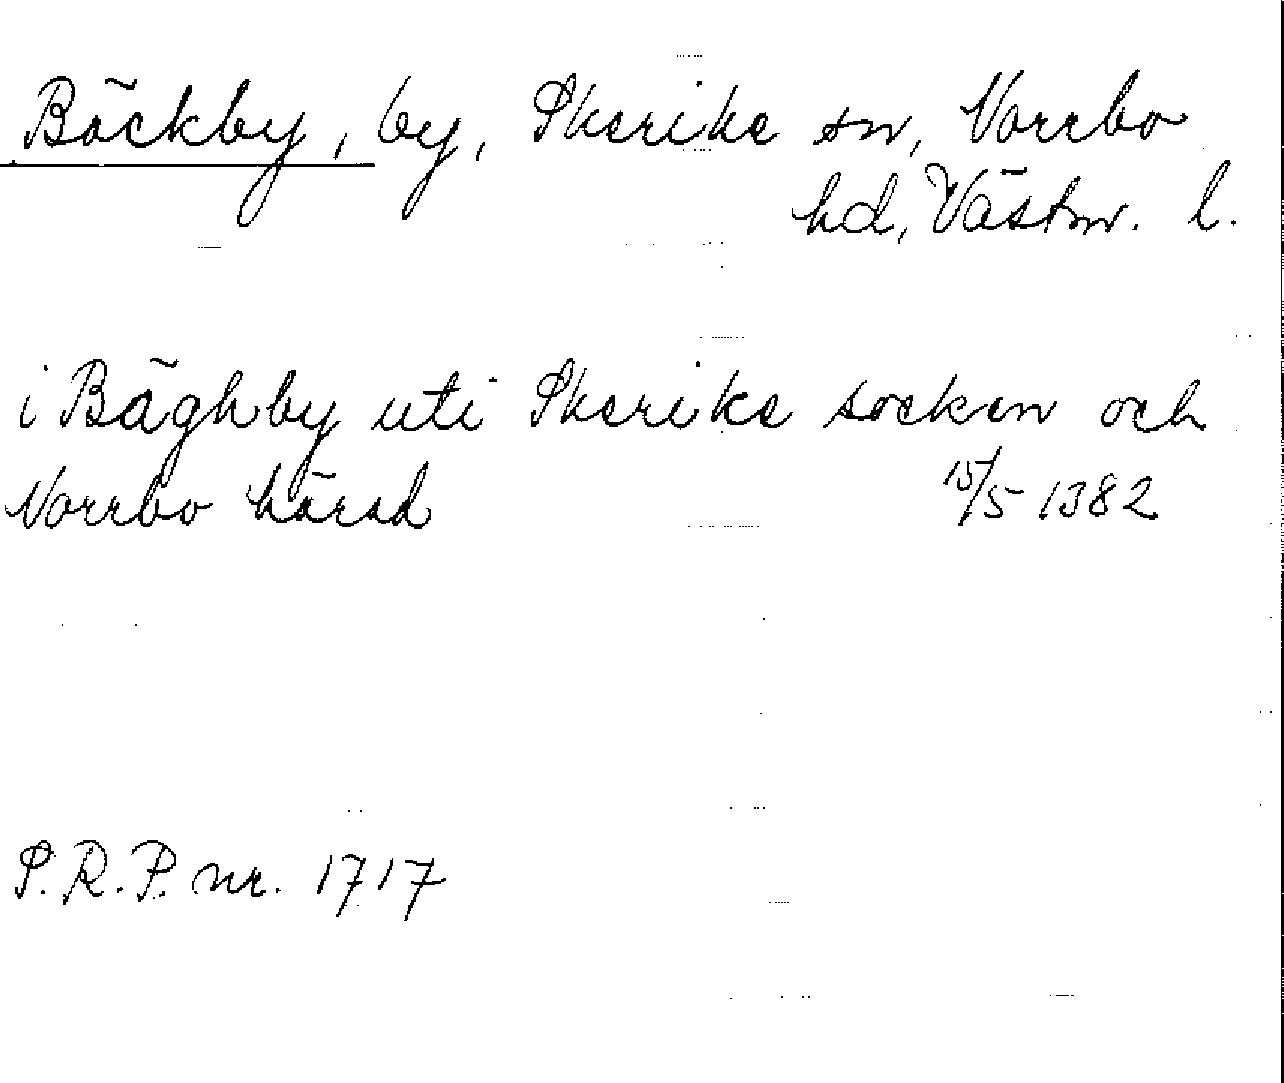 Bäckby, by, Skerike sn, Norrbo
hd, Västm. l.
i Bäghby uti Skerike socken och
Norrbo härad 15/5 1382
S.R.P. nr. 1717